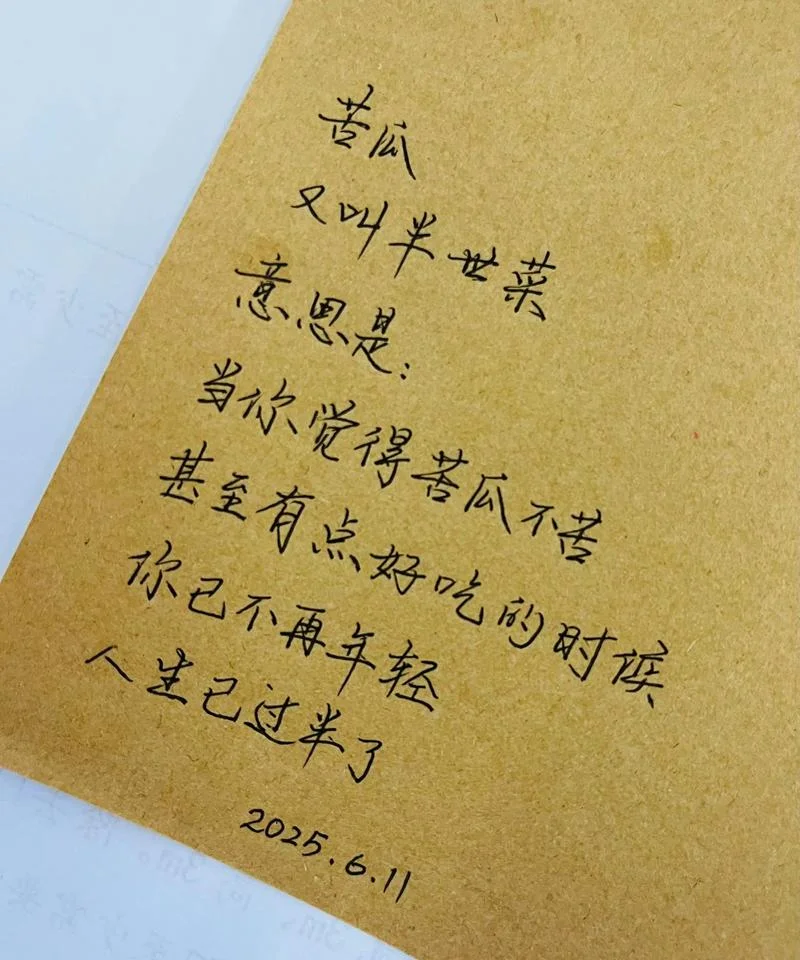 苦瓜
又叫半世菜
意思是：
当你觉得苦瓜不苦
甚至有点好吃的时候
你已不再年轻
人生已过半了
2025.6.11